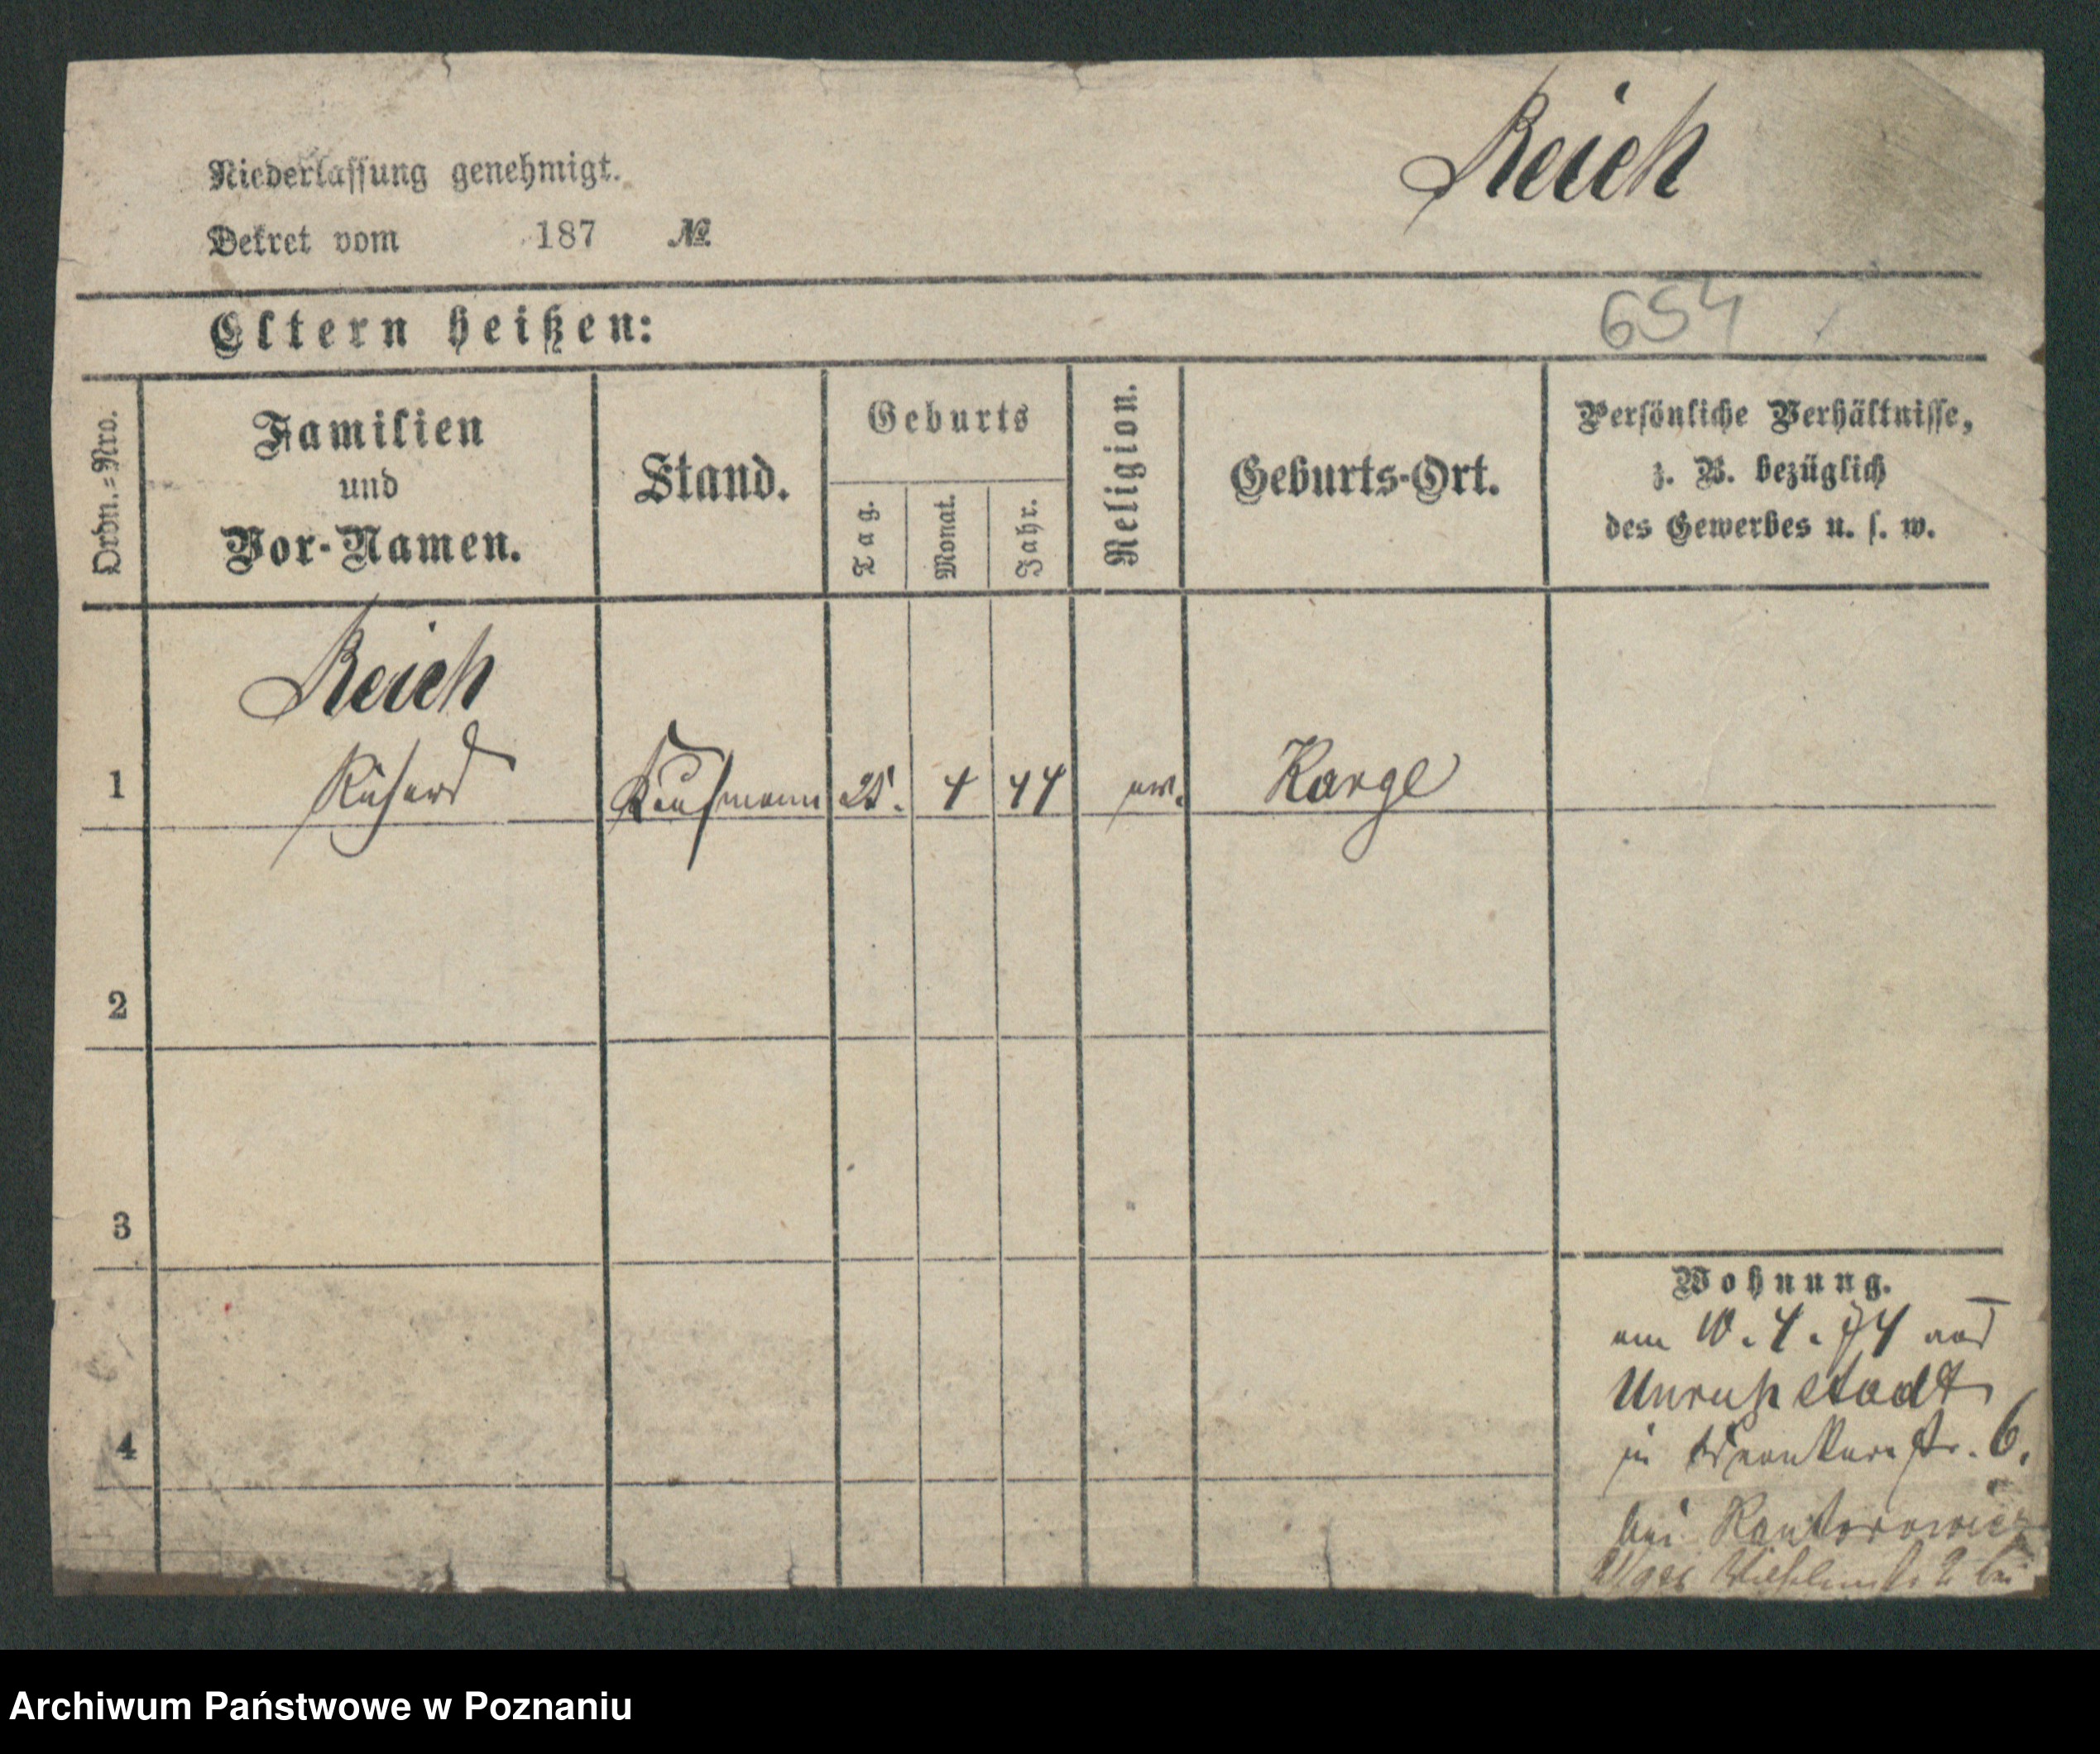 Reich
Niederlassung genehmigt.
Dekret vom 187 №
Eltern heißen:
654
Ordn.-Nro.
Familien
und
Vor-Namen.
Stand.
Geburts
Tag.
Monat.
Jahr.
Religion.
Geburts-Ort.
Persönliche Verhältnisse,
z. B. bezüglich
des Gewerbes u. s. w.
Reich
1 Richard Kaufmann 25. 4 44 Karge
2
3
4
Wohnung.
am 10. 4. 74 aus
Unruhstadt
in str. 6.
bei Kantorowicz
Wilhelmstr. 2 bei
Archiwum Państwowe w Poznaniu